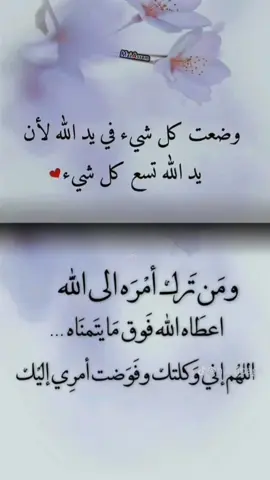 وضعت كل شيء في يد الله لأن
يد الله تسع كل شيء
ومَن تَركْ أمْرَه الى الله
اعطَاه الله فَوق مَا يتَمنَاه ...
اللهُم إني وَكلتكْ وفَوَضت أمرِي إليْك